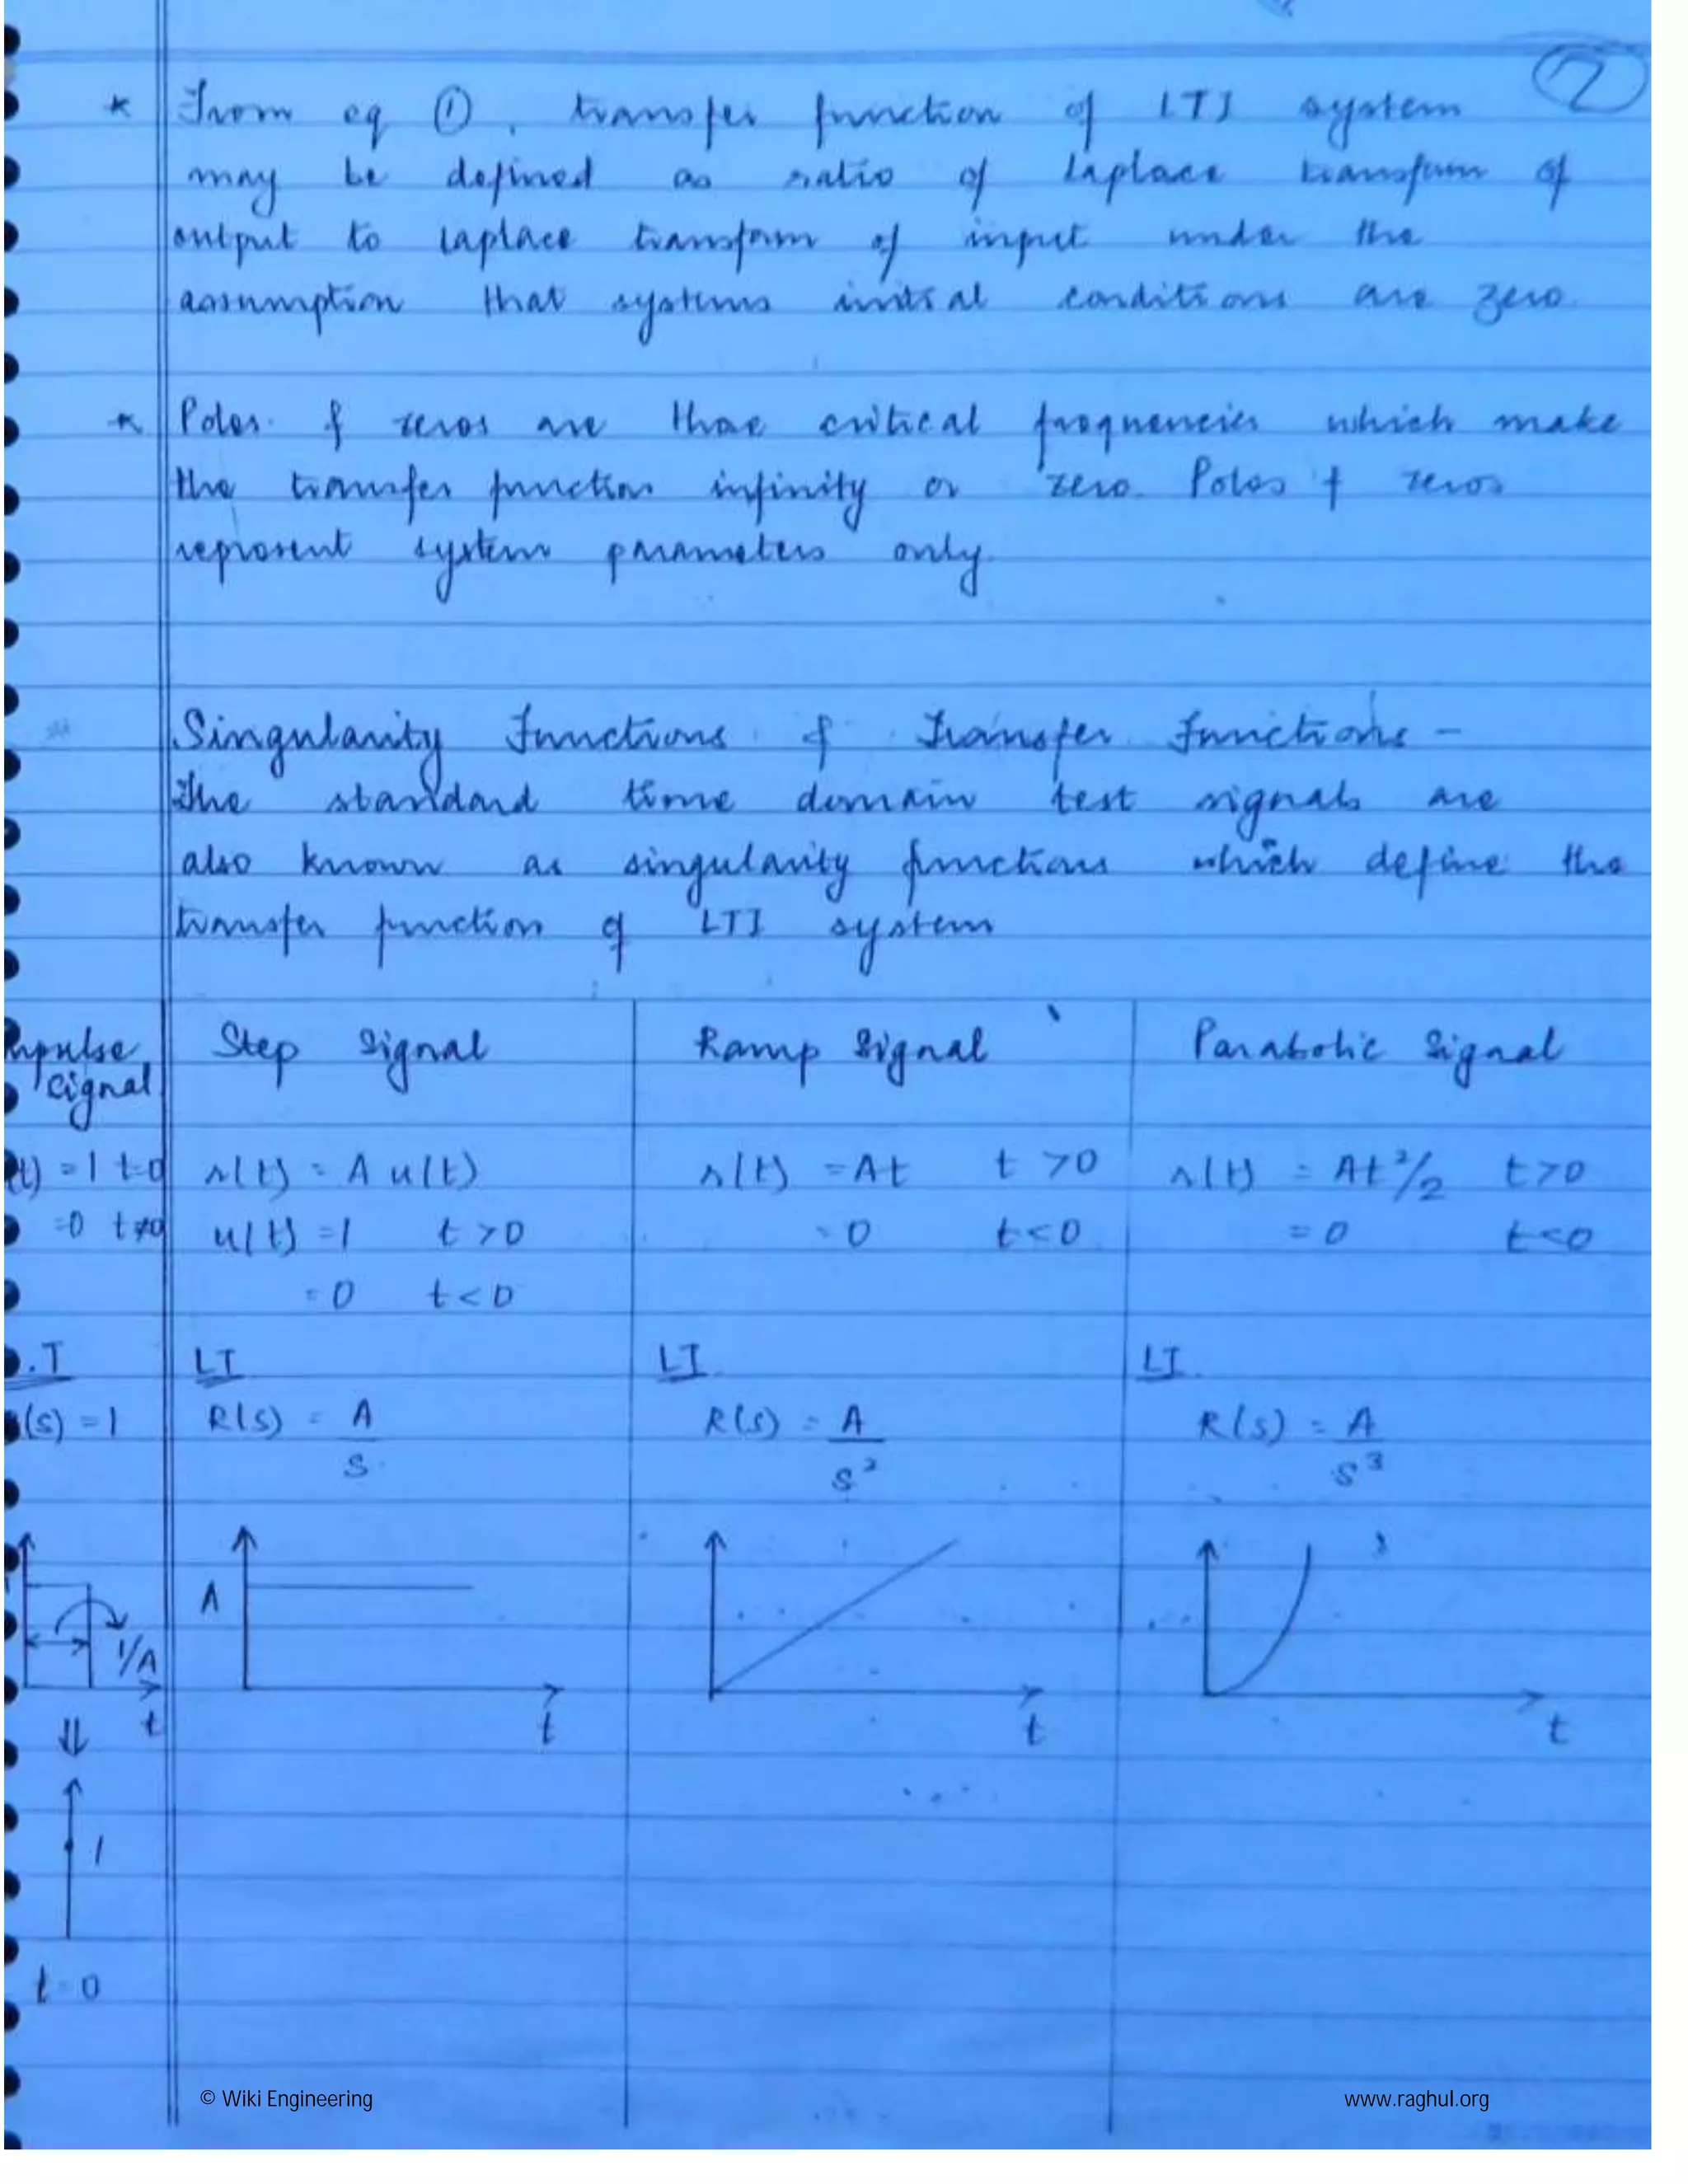 2
* From eq ①, transfer function of LTI system
may be defined as ratio of Laplace transform of
output to laplace transform of input under the
assumption that systems initial conditions are zero
* Poles & zeros are those critical frequencies which make
the transfer function infinity or zero. Poles & zeros
represent system parameters only.
Singularity Functions & Transfer Functions -
The standard time domain test signals are
also known as singularity functions which define the
transfer function of LTI system
mpulse signal
t) = 1 t=0
=0 t≠0
.T
(s) = 1
1/A
t
⇓
1
t=0
Step Signal
r(t) = A u(t)
u(t) = 1 t>0
= 0 t<0
LT
R(s) = A/s
A
t
Ramp Signal
r(t) = At t>0
= 0 t<0
LT
R(s) = A/s²
t
Parabolic Signal
r(t) = At²/2 t>0
= 0 t<0
LT
R(s) = A/s³
t
© Wiki Engineering
www.raghul.org